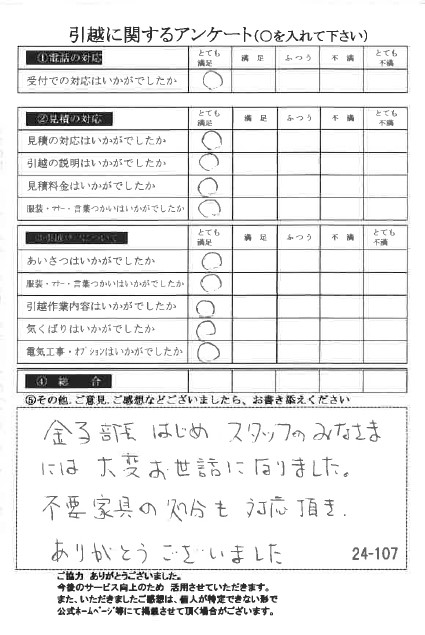 引越に関するアンケート(〇を入れて下さい)
①電話の対応 とても満足 満足 ふつう 不満 とても不満
受付での対応はいかがでしたか
②見積の対応 とても満足 満足 ふつう 不満 とても不満
見積の対応はいかがでしたか
引越の説明はいかがでしたか
見積料金はいかがでしたか
服装・マナー・言葉つかいはいかがでしたか
とても満足 満足 ふつう 不満 とても不満
あいさつはいかがでしたか
服装・マナー・言葉つかいはいかがでしたか
引越作業内容はいかがでしたか
気くばりはいかがでしたか
電気工事・オプションはいかがでしたか
④ 総 合
⑤その他、ご意見、ご感想などございましたら、お書き添えください
金子部長 はじめ スタッフのみなさま
には 大変お世話になりました。
不要家具の処分も 対応頂き、
ありがとうございました
24-107
ご協力 ありがとうございました。
今後のサービス向上のため 活用させていただきます。
また、いただきましたご感想は、個人が特定できない形で
公式ホームページ等にて掲載させて頂く場合がございます。